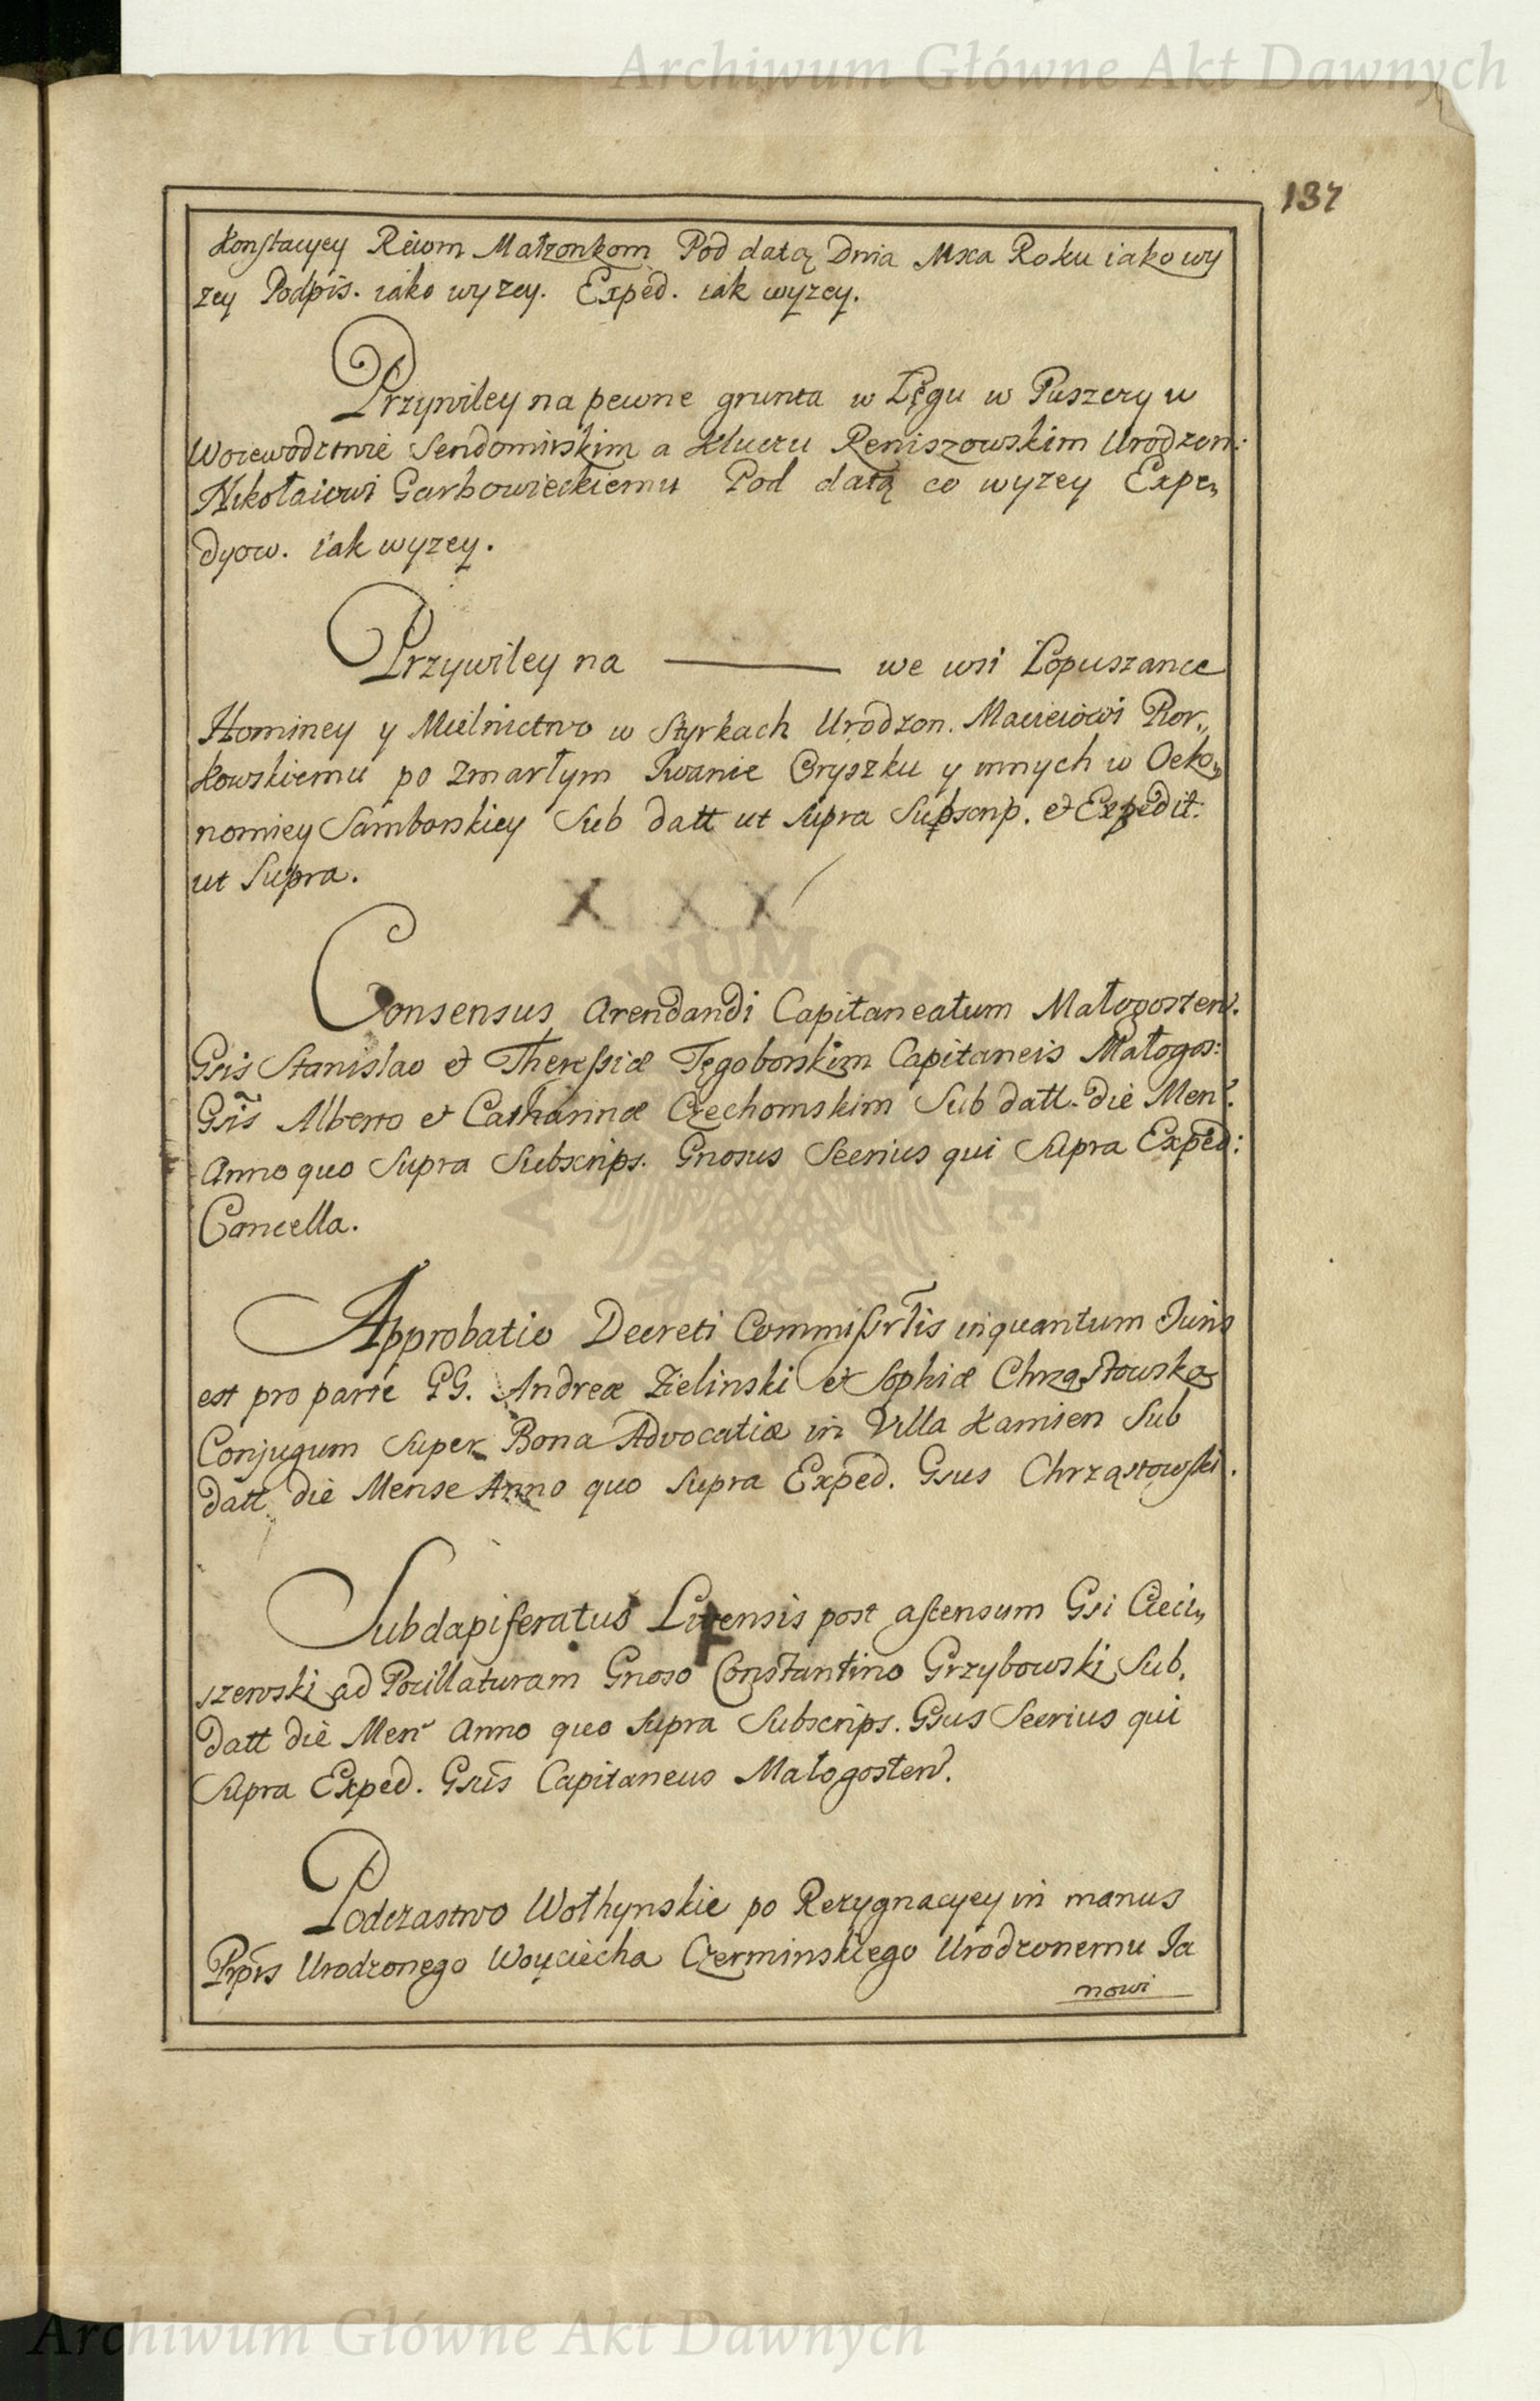 Archiwum Główne Akt Dawnych
137
Konstacyey Reiom Małzonkom Pod datą Dnia Mxa Roku iako wy
zey Podpis. iako wyzey. Exped. iak wyzey.
Przywiley na pewne grunta w Łęgu w Puszczy w
Woiewodztwie Sendomirskim a Kluczu Reniszowskim Urodzon:
Mikołaiowi Garbowieckiemu Pod datą co wyzey Expe„
dyow. iak wyzey.
Przywiley na ——— we wsi Łopuszance
Hominey y Mielnictwo w Styrkach Urodzon. Macieiowi Bor„
kowskiemu po Zmarłym Iwanie Gryszku y innych w Oeko„
nomiey Samborskiey Sub datt ut supra Subscrip. et Expedit:
ut Supra.
X X X
Consensus arendandi Capitaneatum Małogosten.
Gsis Stanislao et Theressiæ Tęgoborskim Capitaneis Małogos:
Gsis Alberto et Catharinæ Czechomskim Sub datt. die Men.
Anno quo Supra Subscrips. Gnosus Seerius qui Supra Exped:
Cancella.
Approbatio Decreti Commissrlis inquantum Juris
est pro parte GG. Andreæ Zielinski et Sophiæ Chrząstowska
Conjugum Super Bona Advocatiæ in Villa Kamien Sub
datt. die Mense Anno quo Supra Exped. Gsus Chrząstowski.
Subdapiferatus Livensis post ascensum Gsi Cieci„
szewski ad Pocillaturam Gnoso Constantino Grzybowski Sub.
datt die Men Anno quo Supra Subscrips. Gsus Seerius qui
Supra Exped. Gsus Capitaneus Małogosten.
Podczastwo Wołhynskie po Rezygnacyey in manus
Ppris Urodzonego Woyciecha Czerminskiego Urodzonemu Ja
nowi
Archiwum Główne Akt Dawnych